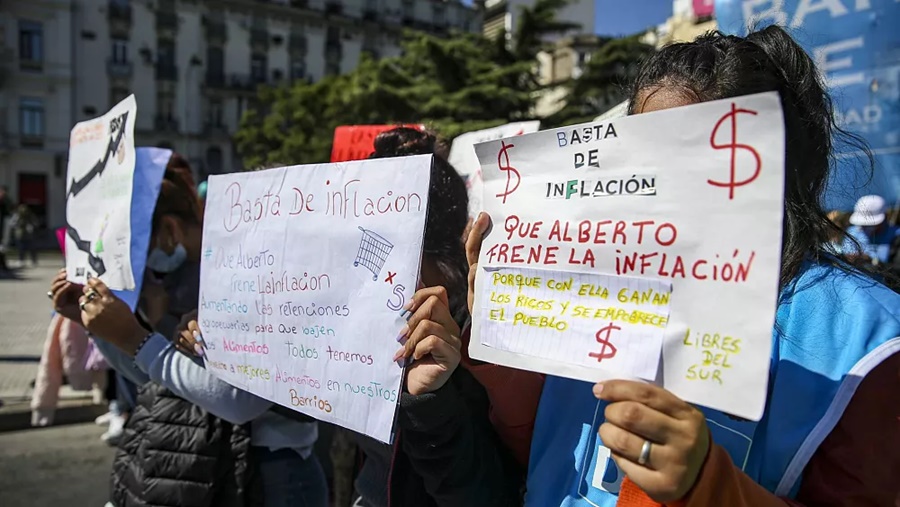 Basta De inflacion
# Que Alberto
frene La inflacion
Aumentando las retenciones
agropecuarias para que bajen
los Alimentos Todos tenemos
a mejores Alimentos en nuestros
Barrios
$
BASTA
DE
INFLACIÓN
$ $
QUE ALBERTO
FRENE LA INFLACIÓN
PORQUE CON ELLA GANAN
LOS RICOS Y SE EMPOBRECE
EL PUEBLO
$
LIBRES
DEL
SUR